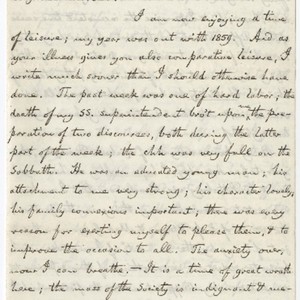 I am now enjoying a time
of leisure; my year was out with 1859. And as
your illness gives you also comparative leisure, I
write much sooner than I should otherwise have
done. The past week was one of hard labor; the
death of my SS. superintendent bro't upon me the pre-
paration of two discourses, both during the latter
part of the week; the chh was very full on the
Sabbath. He was an educated young man; his
attachment to me very strong; his character lovely,
his family connexions important; there was every
reason for exerting myself to please them, & to
improve the occasion to all. The anxiety over,
now I can breathe. — It is a time of great wrath
here; the mass of the Society is indignant & me-